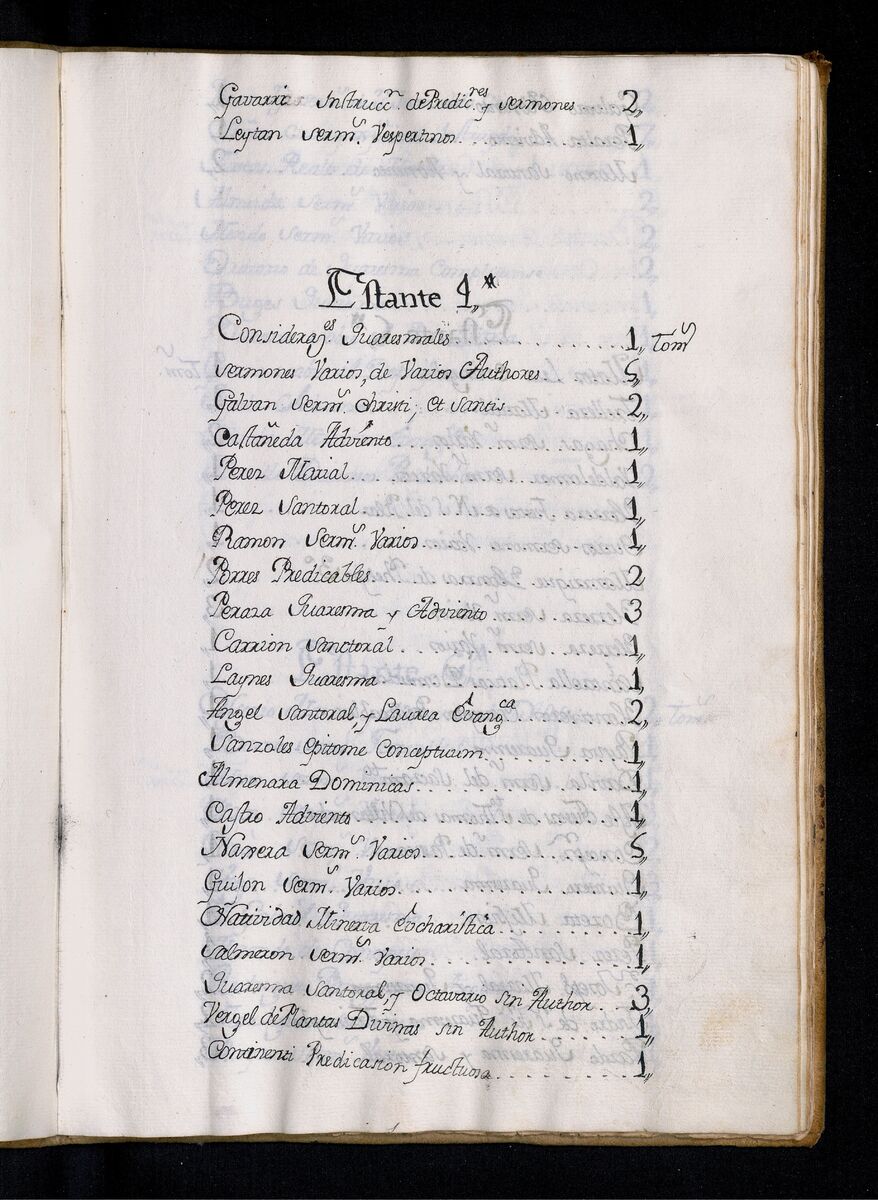 Gavarri Instrucc.n de Predic.res y sermones 2,,
Leytan serm.s Vespertinos . . . 1,,
Estante 4,,
Considerac.es Quaresmales . . . 1,, Tom.s
sermones Varios, de Varios Authores 5,,
Galvan serm.s Christi, et santis 2,,
Castañeda Adviento . . . 1,,
Perez Marial . . . 1,,
Perez Santoral . . . 1,,
Ramon serm.s Varios . . . 1,,
Porres Predicables . . . 2
Peraza Quaresma y Adviento . . . 3
Carrion Sanctoral . . . 1,,
Laynes Quaresma . . . 1,,
Angel Santoral, y Laurea Evang.ca . . . 2,,
Sanzoles Epitome Conceptuum . . . 1,,
Almenara Dominicas . . . 1,,
Castro Adviento . . . 1,,
serm.s Varios . . . 5,,
Guilon serm.s Varios . . . 1,,
Natividad Minerva Eucharistica . . . 1,,
Salmeron serm.s Varios . . . 1,,
Quaresma Santoral, y Octavario sin Author . . . 3,,
Vergel de Plantas Divinas sin Author . . . 1,,
Continenti Predicasion fructuosa . . . 1,,